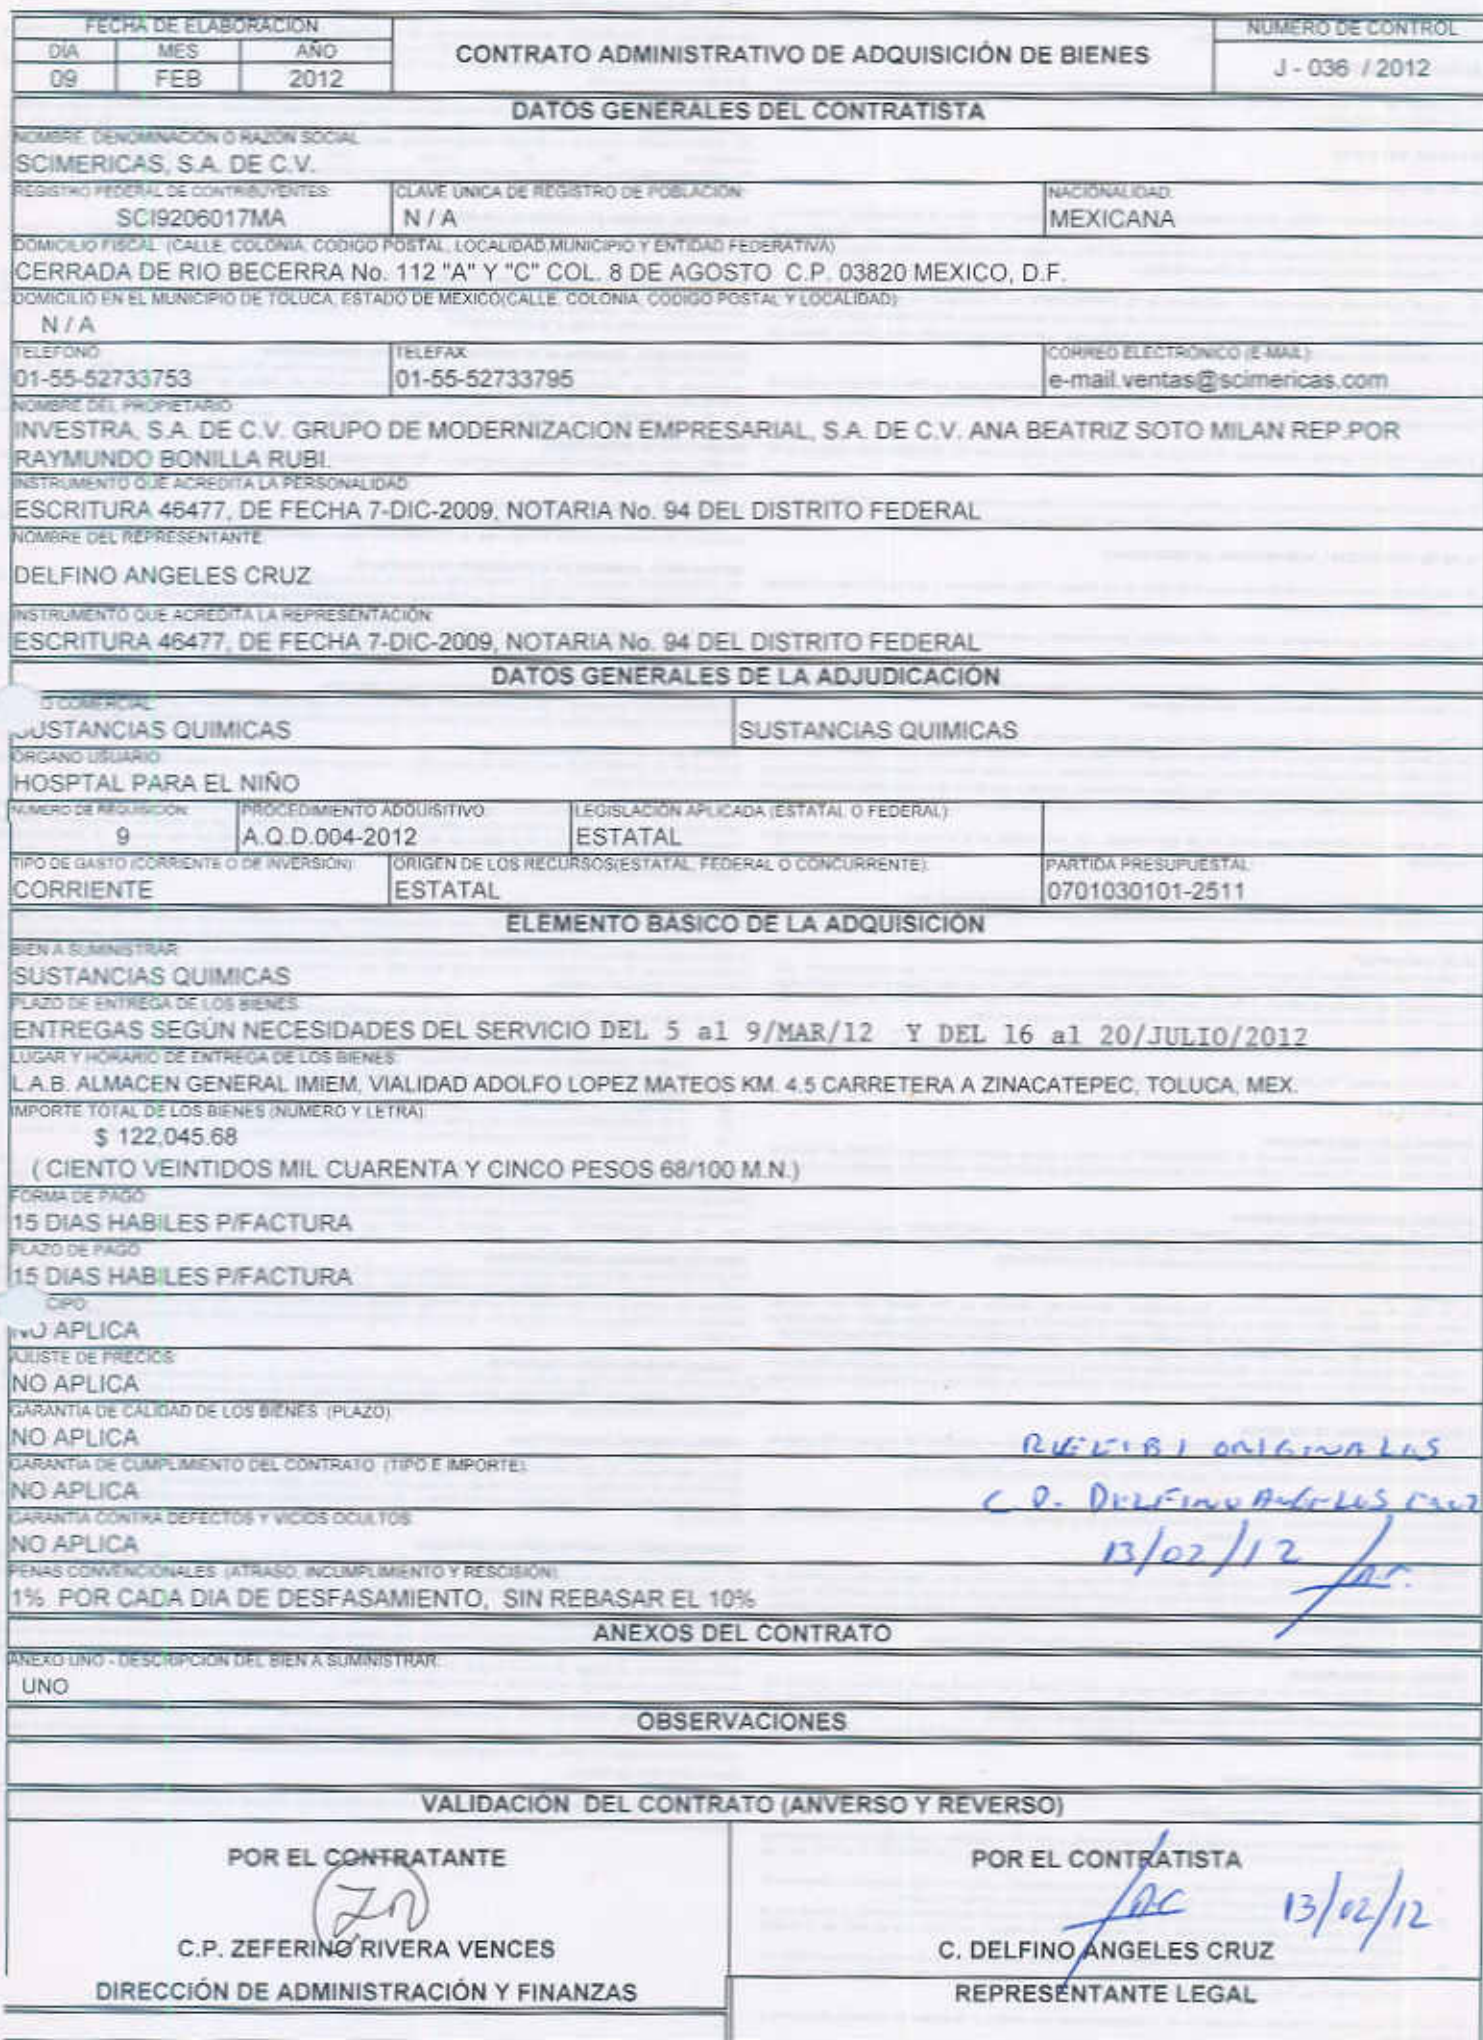 FECHA DE ELABORACIÓN
DÍA MES AÑO
09 FEB 2012
CONTRATO ADMINISTRATIVO DE ADQUISICIÓN DE BIENES
NÚMERO DE CONTROL
J - 036 / 2012
DATOS GENERALES DEL CONTRATISTA
NOMBRE, DENOMINACIÓN O RAZÓN SOCIAL
SCIMERICAS, S.A. DE C.V.
REGISTRO FEDERAL DE CONTRIBUYENTES: CLAVE UNICA DE REGISTRO DE POBLACIÓN: NACIONALIDAD:
SCI9206017MA N / A MEXICANA
DOMICILIO FISCAL: (CALLE, COLONIA, CODIGO POSTAL, LOCALIDAD,MUNICIPIO Y ENTIDAD FEDERATIVA)
CERRADA DE RIO BECERRA No. 112 "A" Y "C" COL. 8 DE AGOSTO C.P. 03820 MEXICO, D.F.
DOMICILIO EN EL MUNICIPIO DE TOLUCA, ESTADO DE MEXICO(CALLE, COLONIA, CODIGO POSTAL Y LOCALIDAD):
N / A
TELEFONO: TELEFAX: CORREO ELECTRÓNICO (E-MAIL):
01-55-52733753 01-55-52733795 e-mail.ventas@scimericas.com
NOMBRE DEL PROPIETARIO:
INVESTRA, S.A. DE C.V. GRUPO DE MODERNIZACION EMPRESARIAL, S.A. DE C.V. ANA BEATRIZ SOTO MILAN REP.POR
RAYMUNDO BONILLA RUBI.
INSTRUMENTO QUE ACREDITA LA PERSONALIDAD:
ESCRITURA 46477, DE FECHA 7-DIC-2009, NOTARIA No. 94 DEL DISTRITO FEDERAL
NOMBRE DEL REPRESENTANTE:
DELFINO ANGELES CRUZ
INSTRUMENTO QUE ACREDITA LA REPRESENTACIÓN:
ESCRITURA 46477, DE FECHA 7-DIC-2009, NOTARIA No. 94 DEL DISTRITO FEDERAL
DATOS GENERALES DE LA ADJUDICACIÓN
O COMERCIAL:
SUSTANCIAS QUIMICAS SUSTANCIAS QUIMICAS
ÓRGANO USUARIO:
HOSPTAL PARA EL NIÑO
NÚMERO DE REQUISICIÓN: PROCEDIMIENTO ADQUISITIVO: LEGISLACIÓN APLICADA (ESTATAL O FEDERAL):
9 A.Q.D.004-2012 ESTATAL
TIPO DE GASTO (CORRIENTE O DE INVERSIÓN): ORIGEN DE LOS RECURSOS(ESTATAL, FEDERAL O CONCURRENTE): PARTIDA PRESUPUESTAL:
CORRIENTE ESTATAL 0701030101-2511
ELEMENTO BÁSICO DE LA ADQUISICIÓN
BIEN A SUMINISTRAR:
SUSTANCIAS QUIMICAS
PLAZO DE ENTREGA DE LOS BIENES:
ENTREGAS SEGÚN NECESIDADES DEL SERVICIO DEL 5 al 9/MAR/12 Y DEL 16 al 20/JULIO/2012
LUGAR Y HORARIO DE ENTREGA DE LOS BIENES:
L.A.B. ALMACEN GENERAL IMIEM, VIALIDAD ADOLFO LOPEZ MATEOS KM. 4.5 CARRETERA A ZINACATEPEC, TOLUCA, MEX.
IMPORTE TOTAL DE LOS BIENES (NÚMERO Y LETRA):
$ 122,045.68
( CIENTO VEINTIDOS MIL CUARENTA Y CINCO PESOS 68/100 M.N.)
FORMA DE PAGO:
15 DIAS HABILES P/FACTURA
PLAZO DE PAGO:
15 DIAS HABILES P/FACTURA
CIPO:
NO APLICA
AJUSTE DE PRECIOS:
NO APLICA
GARANTÍA DE CALIDAD DE LOS BIENES (PLAZO):
NO APLICA
GARANTÍA DE CUMPLIMIENTO DEL CONTRATO (TIPO E IMPORTE):
NO APLICA
GARANTÍA CONTRA DEFECTOS Y VICIOS OCULTOS:
NO APLICA
RECIBI ORIGINALES
C.D. DELFINO ANGELES CRUZ
13/02/12
PENAS CONVENCIONALES (ATRASO, INCUMPLIMIENTO Y RESCISIÓN):
1% POR CADA DIA DE DESFASAMIENTO, SIN REBASAR EL 10%
ANEXOS DEL CONTRATO
ANEXO UNO - DESCRIPCIÓN DEL BIEN A SUMINISTRAR:
UNO
OBSERVACIONES
VALIDACIÓN DEL CONTRATO (ANVERSO Y REVERSO)
POR EL CONTRATANTE POR EL CONTRATISTA
13/02/12
C.P. ZEFERINO RIVERA VENCES C. DELFINO ANGELES CRUZ
DIRECCIÓN DE ADMINISTRACIÓN Y FINANZAS REPRESENTANTE LEGAL